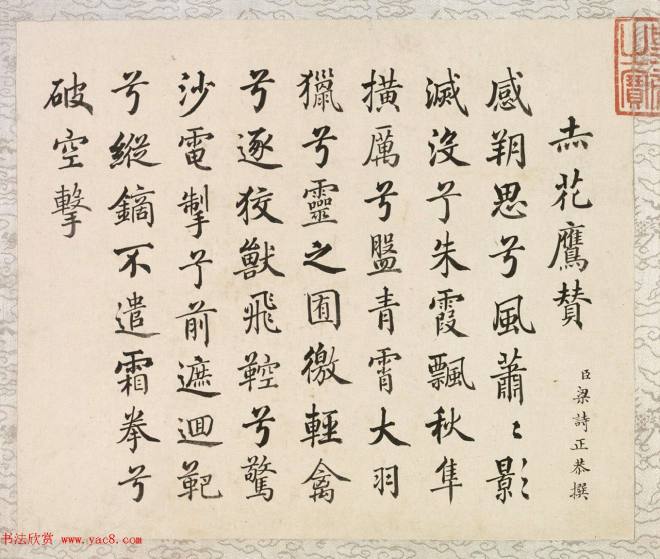 赤花鷹贊
臣梁詩正恭撰
感朔思兮風蕭〻影
滅没兮朱霞飄秋隼
橫厲兮盤青霄大羽
獵兮靈之囿徼輕禽
兮逐狡獸飛鞚兮驚
沙電掣兮前遮迴靶
兮縱鏑不遣霜拳兮
破空擊
书法欣赏 www.yac8.com